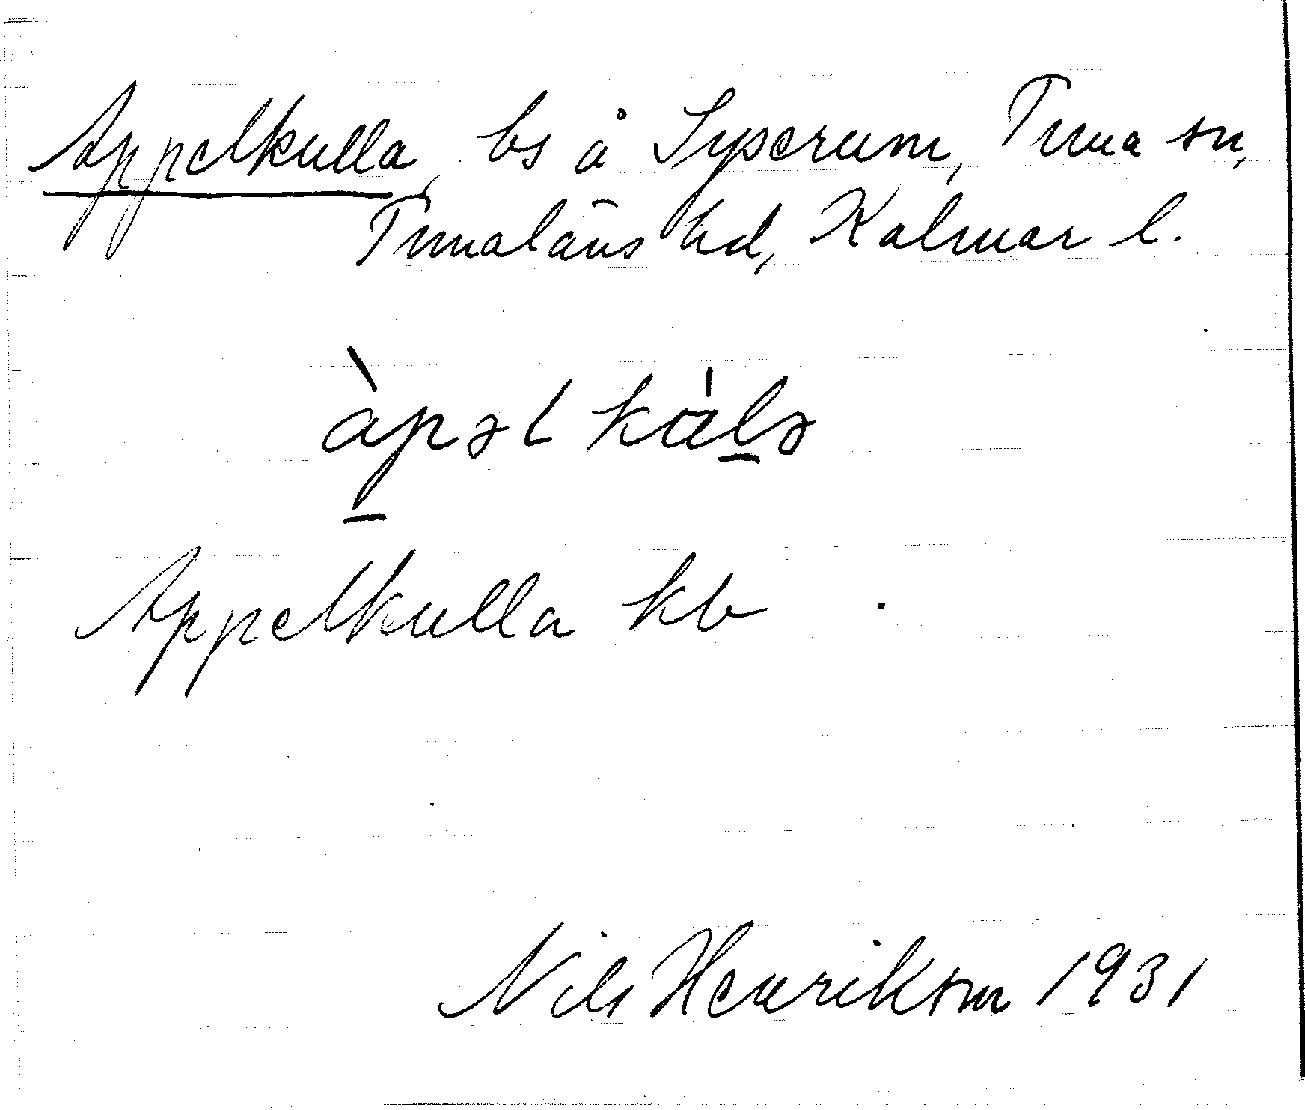 Appelkulla, bs å Syserum, Tuna sn,
Tunaläns hd, Kalmar l.
àpəl kulə
Appelkulla kb
Nils Henrikson 1931